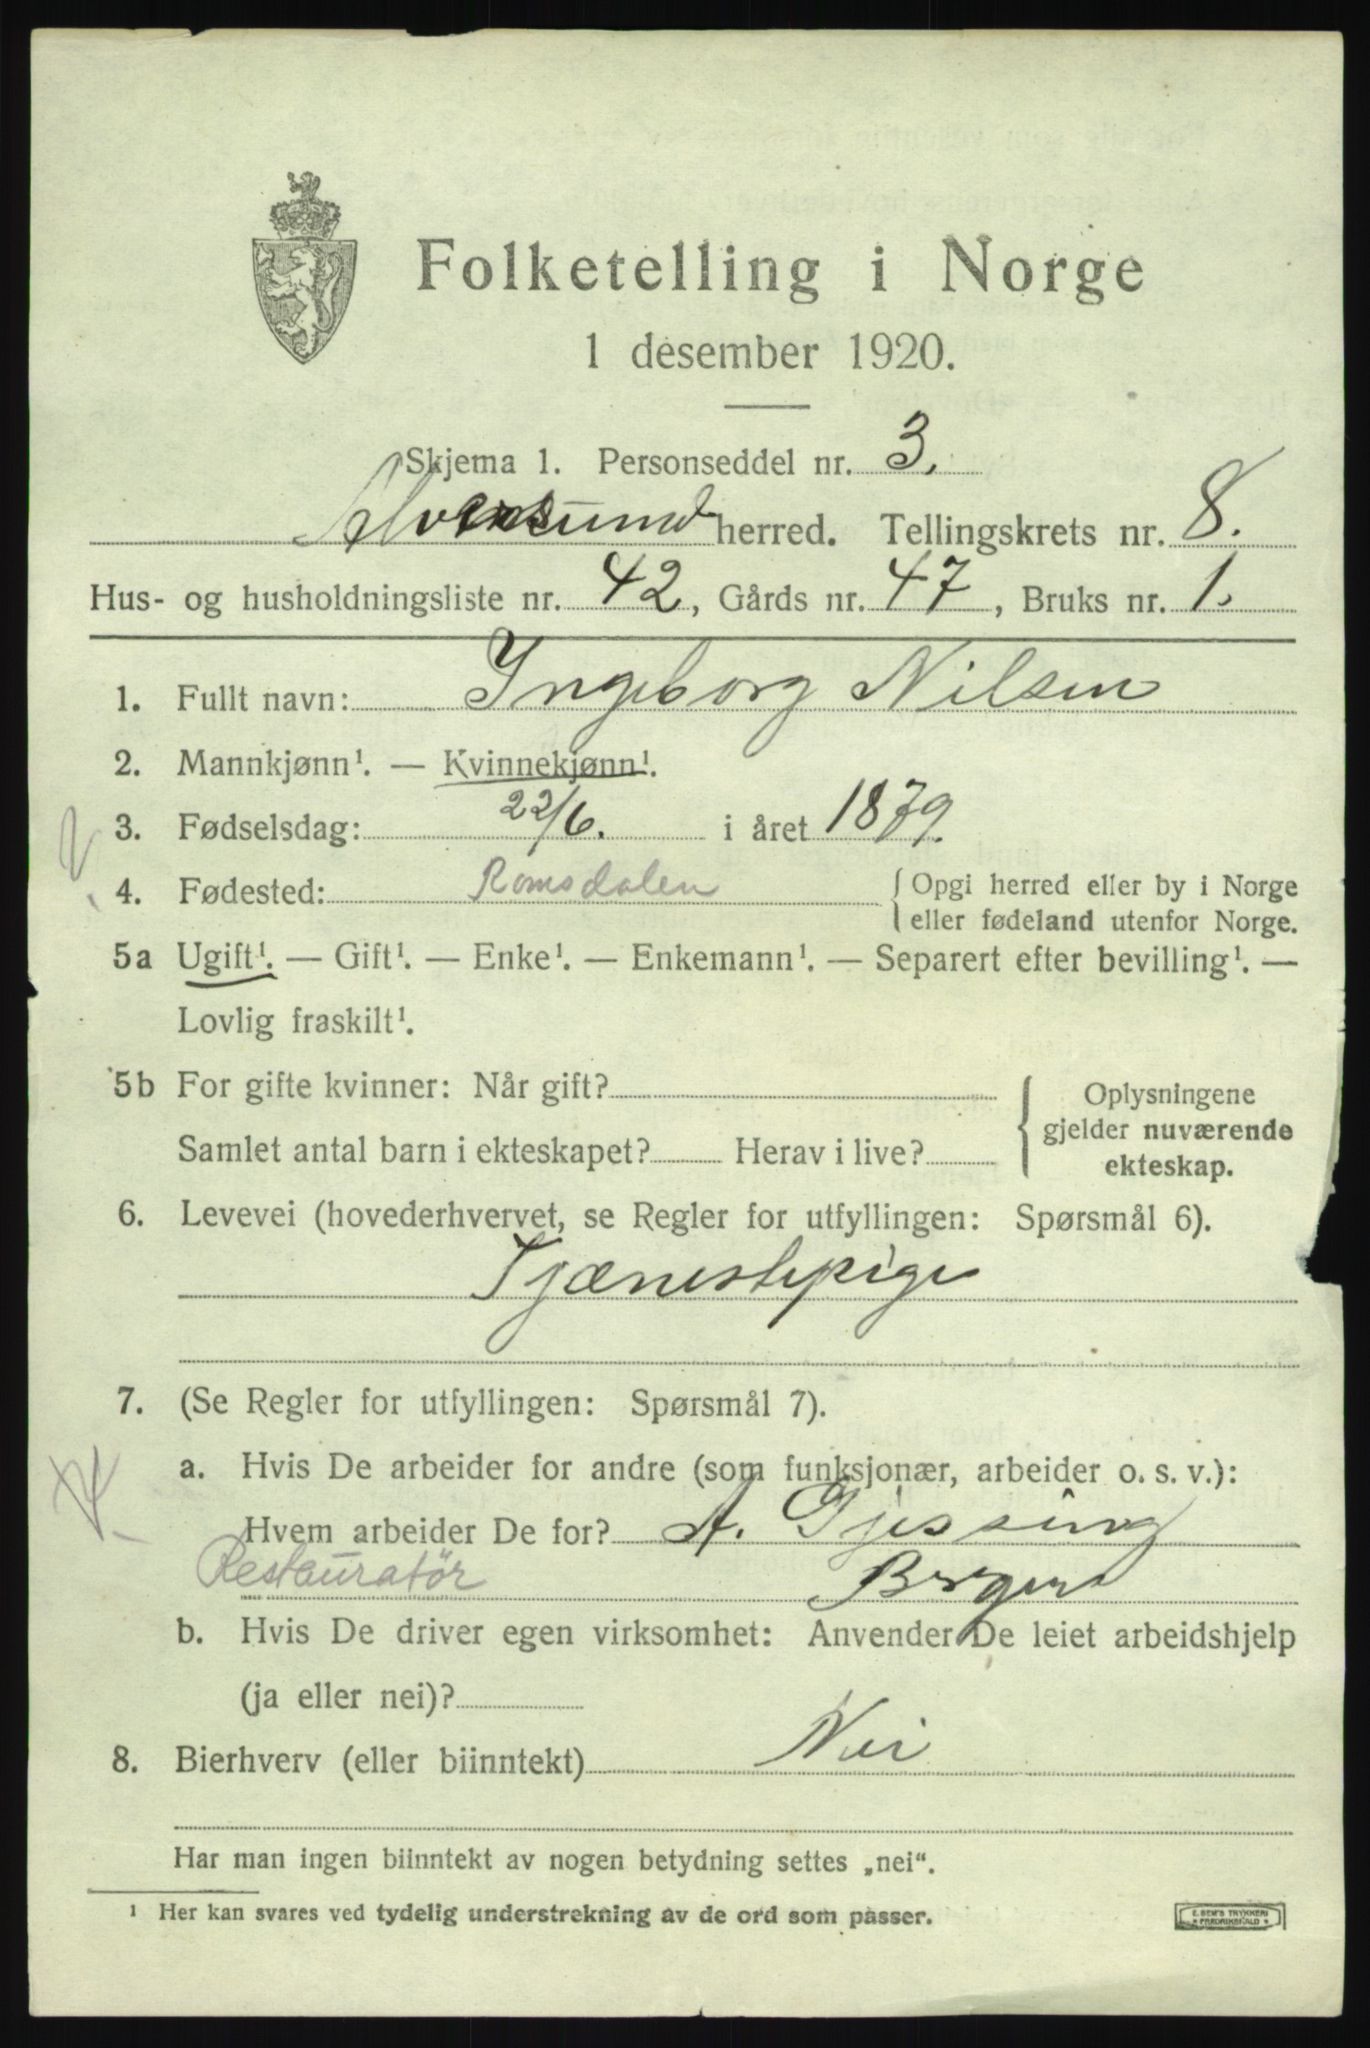 Folketelling i Norge
1 desember 1920.
Skjema 1. Personseddel nr. 3.
Alversund herred. Tellingskrets nr. 8.
Hus- og husholdningsliste nr. 42, Gårds nr. 47, Bruks nr. 1.
1. Fullt navn: Ingeborg Nilsen
2. Mannkjønn¹. — Kvinnekjønn¹.
3. Fødselsdag: 22/6. i året 1879.
?
4. Fødested: Romsdalen { Opgi herred eller by i Norge
eller fødeland utenfor Norge.
5a Ugift¹. — Gift¹. — Enke¹. — Enkemann¹. — Separert efter bevilling¹. —
Lovlig fraskilt¹.
5b For gifte kvinner: Når gift? { Oplysningene
gjelder nuværende
Samlet antal barn i ekteskapet? Herav i live?
ekteskap.
6. Levevei (hovederhvervet, se Regler for utfyllingen: Spørsmål 6).
Tjænestepige
7. (Se Regler for utfyllingen: Spørsmål 7).
a. Hvis De arbeider for andre (som funksjonær, arbeider o. s. v.):
Hvem arbeider De for? A. Gjessing
Restauratør Bergen
b. Hvis De driver egen virksomhet: Anvender De leiet arbeidshjelp
(ja eller nei)?
8. Bierhverv (eller biinntekt) Nei
Har man ingen biinntekt av nogen betydning settes „nei“.
¹ Her kan svares ved tydelig understrekning av de ord som passer.
E. SEM'S TRYKKERI
FREDRIKSHALD